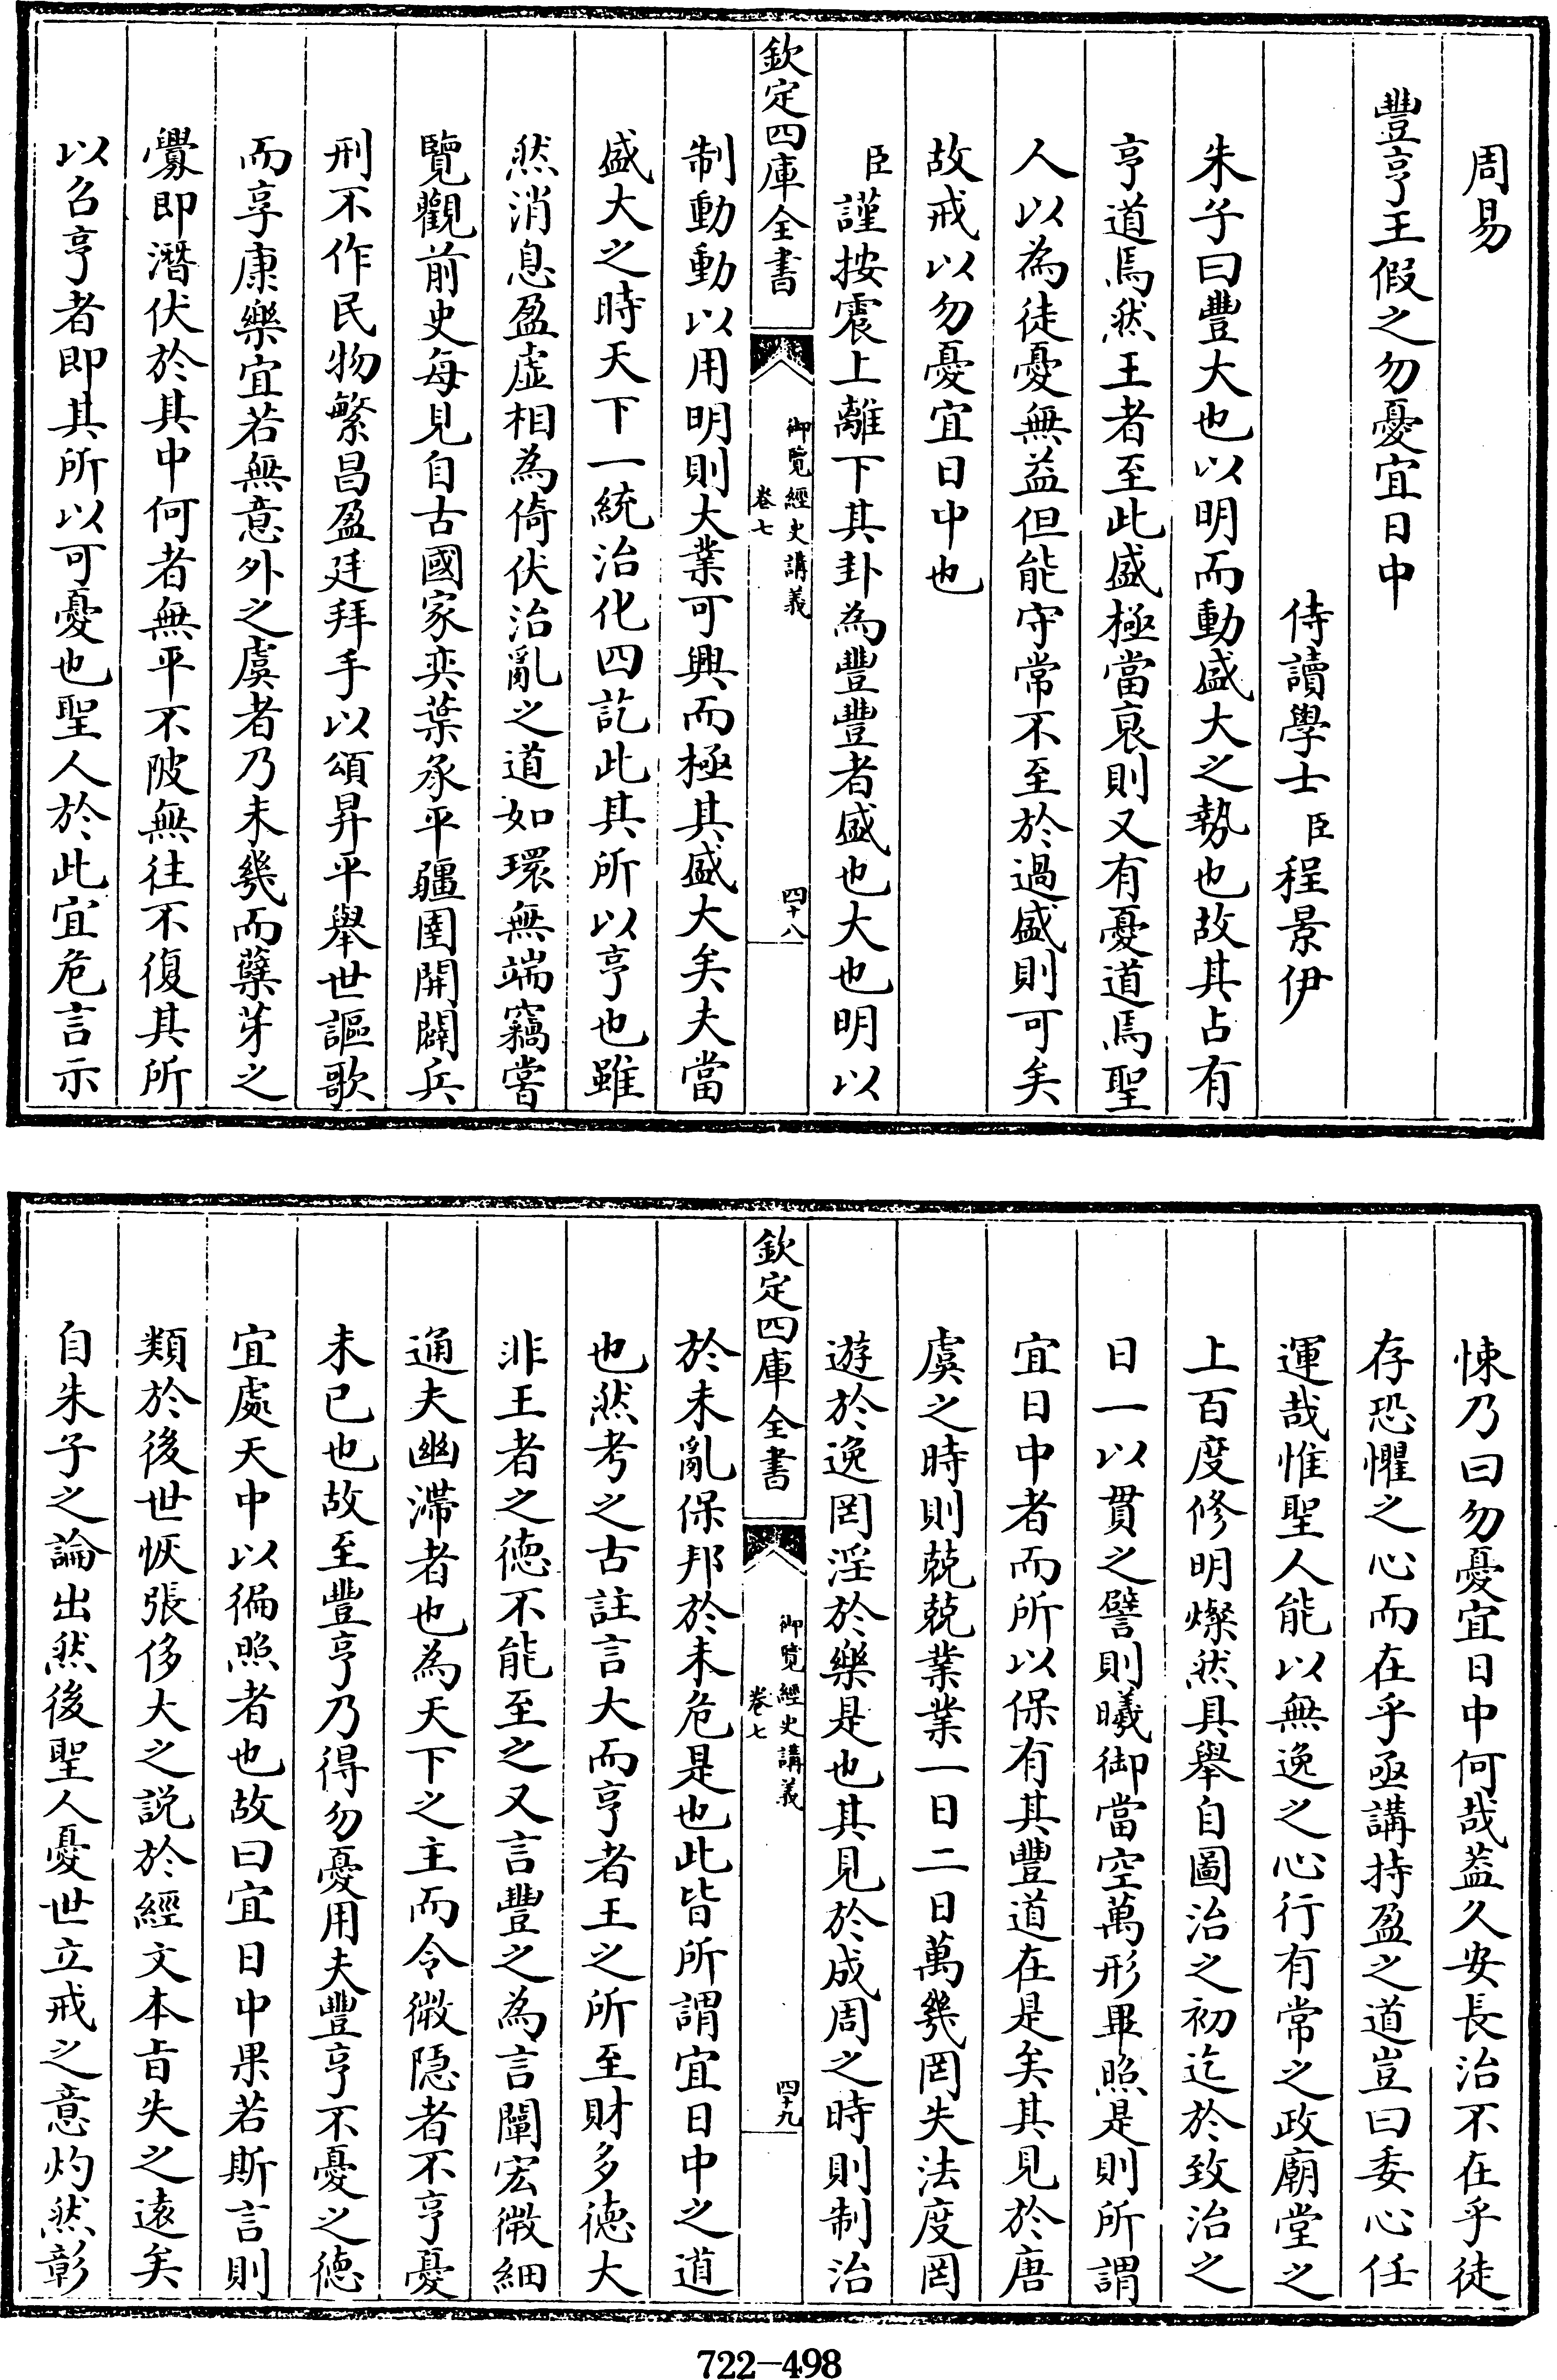 周易
豐亨王假之勿憂宜日中
侍讀學士臣程景伊
朱子曰豐大也以明而動盛大之勢也故其占有
亨道焉然王者至此盛極當衰則又有憂道焉聖
人以為徒憂無益但能守常不至於過盛則可矣
故戒以勿憂宜日中也
臣謹按震上離下其卦為豐豐者盛也大也明以
欽定四庫全書
御覽經史講義
卷七
四十八
制動動以用明則大業可興而極其盛大矣夫當
盛大之時天下一統治化四訖此其所以亨也雖
然消息盈虛相為倚伏治亂之道如環無端竊嘗
覽觀前史每見自古國家奕葉承平疆圉開闢兵
刑不作民物繁昌盈廷拜手以頌昇平舉世謳歌
而享康樂宜若無意外之虞者乃未幾而蘖芽之
釁即潛伏於其中何者無平不陂無往不復其所
以召亨者即其所以可憂也聖人於此宜危言示
悚乃曰勿憂宜日中何哉葢久安長治不在乎徒
存恐懼之心而在乎亟講持盈之道豈曰委心任
運哉惟聖人能以無逸之心行有常之政廟堂之
上百度修明燦然具舉自圖治之初迄於致治之
日一以貫之譬則曦御當空萬形畢照是則所謂
宜日中者而所以保有其豐道在是矣其見於唐
虞之時則兢兢業業一日二日萬幾罔失法度罔
遊於逸罔淫於樂是也其見於成周之時則制治
欽定四庫全書
御覽經史講義
卷七
四十九
於未亂保邦於未危是也此皆所謂宜日中之道
也然考之古註言大而亨者王之所至財多德大
非王者之德不能至之又言豐之為言闡宏微細
通夫幽滯者也為天下之主而令微隱者不亨憂
未已也故至豐亨乃得勿憂用夫豐亨不憂之德
宜處天中以徧照者也故曰宜日中果若斯言則
類於後世恢張侈大之說於經文本旨失之遠矣
自朱子之論出然後聖人憂世立戒之意灼然彰
722-498